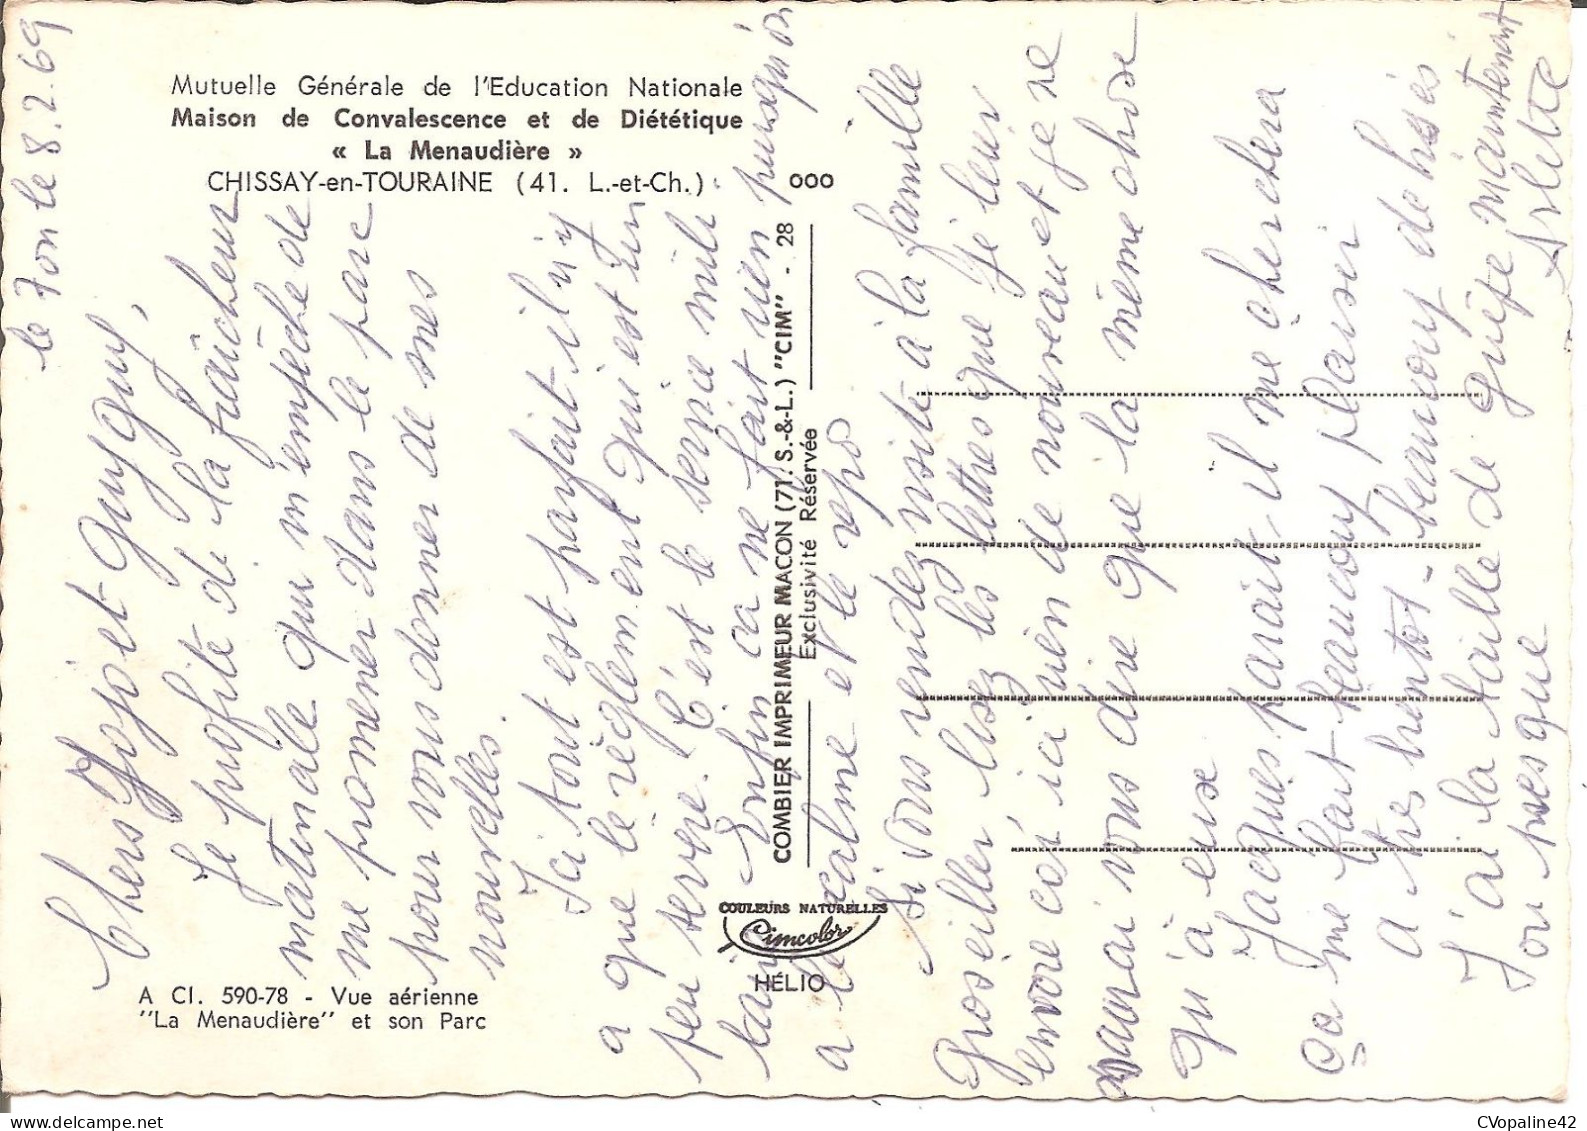 Mutuelle Générale de l'Education Nationale
Maison de Convalescence et de Diététique
« La Menaudière »
CHISSAY-en-TOURAINE (41. L.-et-Ch.)
ooo
le 7 ou le 8.2.69
Chers Jojo et Guyguy,
Je profite de la fraîcheur
matinale qui m'empêche de
me promener dans le parc
pour vous donner de mes
nouvelles.
Ici tout est parfait il n'y
a que le règlement qui est un
peu sévère. C'est le service mili
taire Enfin ca ne fait rien puisqu'on
a le calme et le repos
Si vous rendez visite à la famille
Groseillier lisez les lettres que je leur
envoie car ici rien de nouveau et je ne
saurai vous dire que la même chose
qu'à eux
Jacques parait-il me cherchera
ça me fait beaucoup plaisir
A très bientot - beaucoup de bises
J'ai la taille de guêpe maintenant
ou presque
Arlette
COMBIER IMPRIMEUR MACON (71. S.-&-L.) "CIM" - 28
Exclusivité Réservée
COULEURS NATURELLES
Cimcolor
HÉLIO
A CI. 590-78 - Vue aérienne
"La Menaudière" et son Parc
CVopaline42